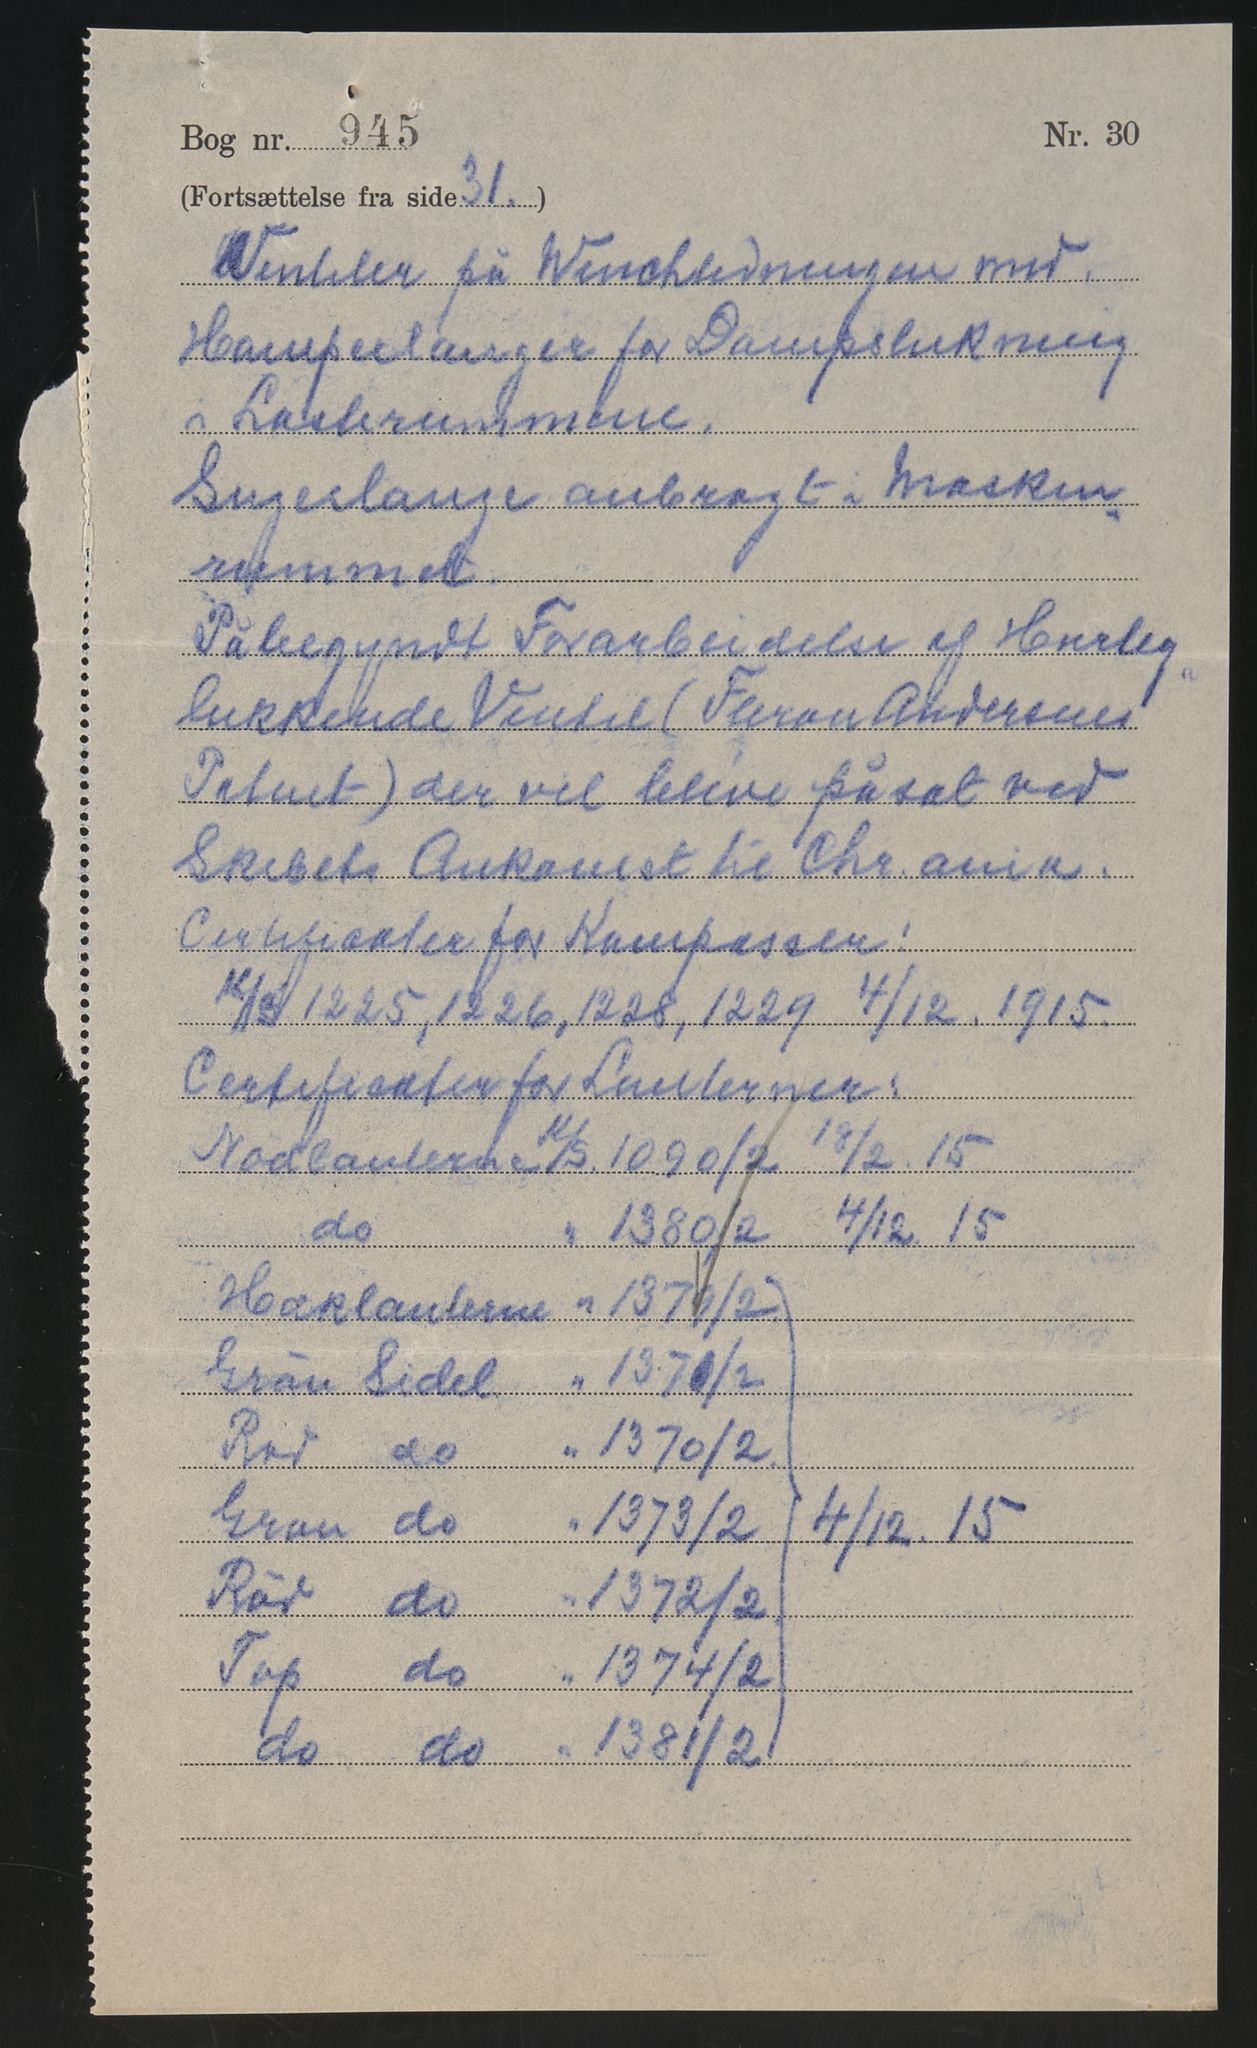 Bog nr. 945 Nr. 30
(Fortsættelse fra side 31.)
Ventiler på Winchledningen med
Hampeslanger for Dampslukning
i Lasterummene.
Sugeslange anbragt i Maskin
rummet.
Påbegyndt Forarbeidelse af Hurtig
lukkende Ventil ( Andersens
Patent) der vil blive påsat ved
Skibets Ankomst til Chr.ania.
Certifikater for Kompasser:
1225, 1226, 1228, 1229 4/12. 1915.
Certifikater for Lanterner:
Nødlanterne 1090/2 18/2. 15
do " 1380/2 4/12. 15
Hæklanterne " 1379/2
Grön Sidel. " 1371/2
Rød do " 1370/2
Grøn do " 1373/2 4/12. 15
Röd do " 1372/2
Top do " 1374/2
do do " 1381/2